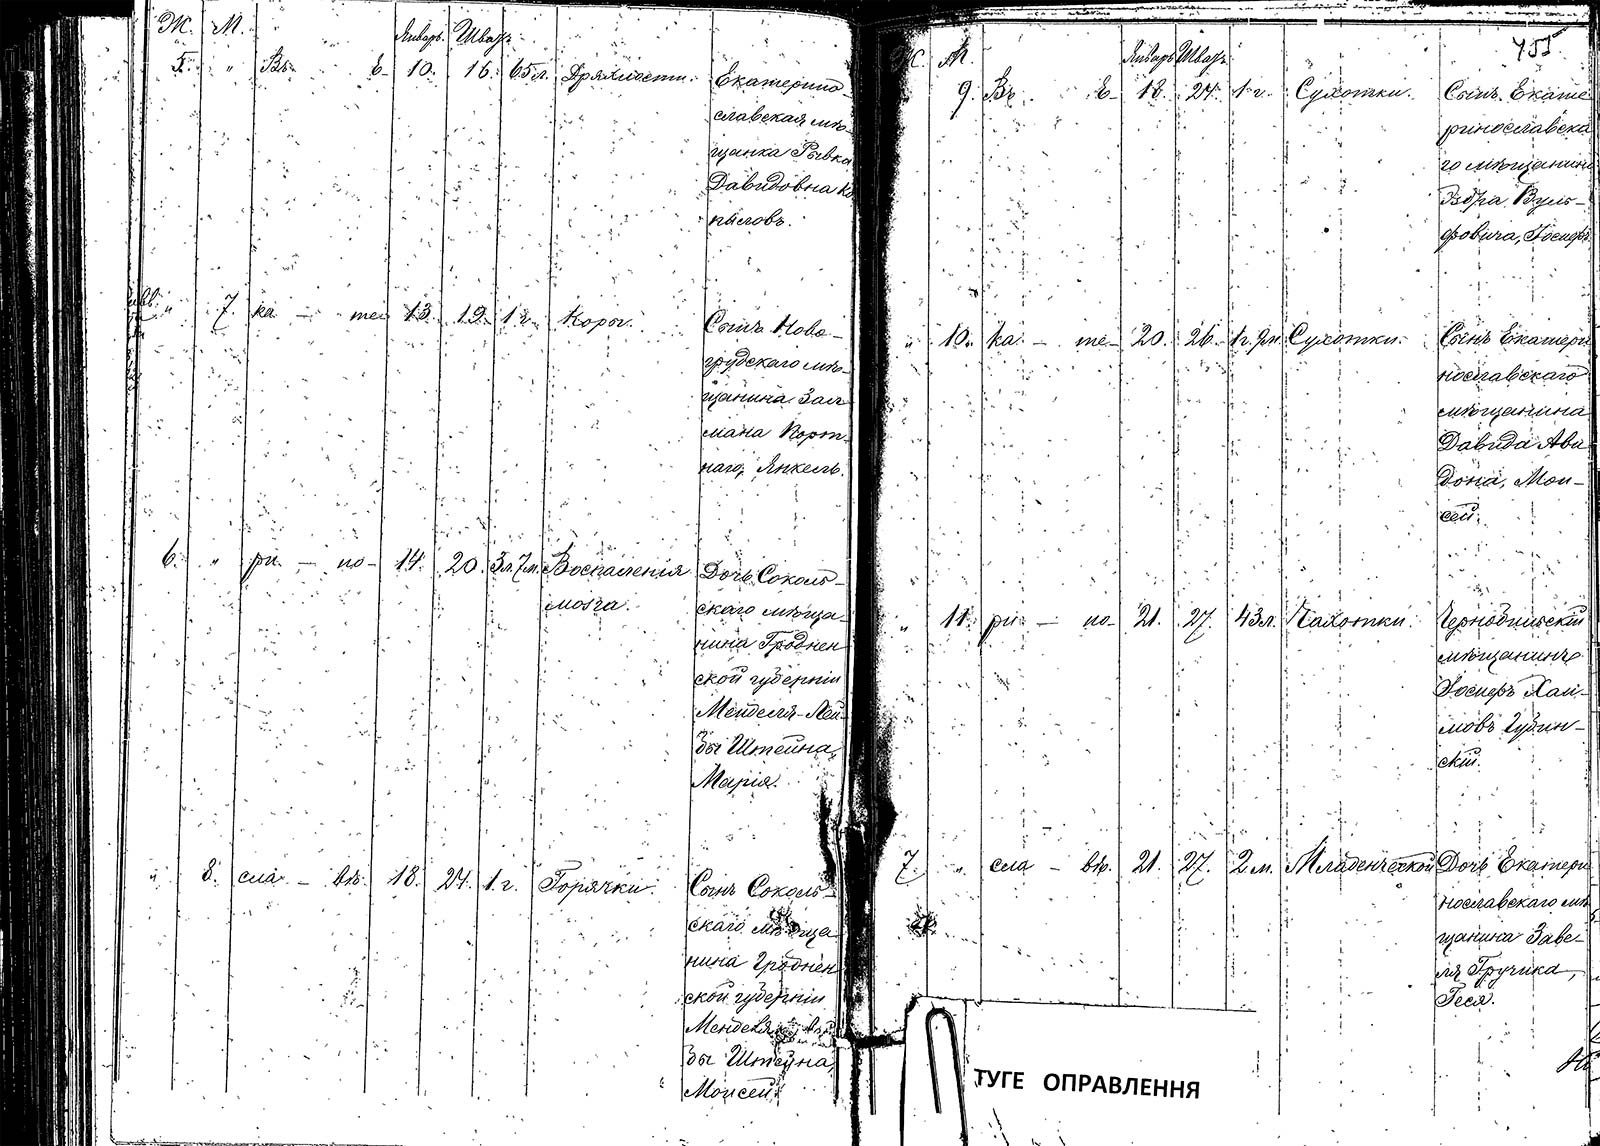 Ж. М. Январь. Шват.
5. „ Въ Е- 10. 16. 65 л. Дряхлости. Екатерино-
славская мѣ-
щанка Рывка
Давидовна Ко
пыловъ.
„ 7. ка - те- 13. 19. 1 г. Коры. Сынъ Ново-
грудскаго мѣ-
щанина Зал-
мана Порт-
наго, Янкель.
6. „ ри - но- 14. 20. 3 л. 7 м. Воспаленія
мозга.
Дочь Соколь-
скаго мѣща-
нина Гроднен
ской губерніи
Менделя-Лей-
бы Штейна,
Марія.
„ 8. сла - вѣ. 18. 24. 1 г. Горячки. Сынъ Соколь-
скаго мѣща-
нина Гроднен
ской губерніи
Менделя
бы Штейна,
Моисей.
455
Ж. М. Январь Шват.
9. Въ Е- 18. 24. 1 г. Сухотки. Сынъ Екате
ринославска
го мѣщанина
Вуль-
фовича, Іосифъ
„ 10. ка - те- 20. 26. 1 г. 9 м. Сухотки. Сынъ Екатери
нославскаго
мѣщанина
Давида Ави
дона, Мои-
сей.
„ 11. ри - но- 21. 27. 43 л. Чахотки.
мѣщанинъ
Іосифъ Хаи-
мовъ Губин-
скій.
7. „ сла - вѣ. 21. 27. 2 м. Младенческой Дочь Екатери
нославскаго мѣ
щанина Заве-
ля Гручика,
Геся.
ТУГЕ ОПРАВЛЕННЯ